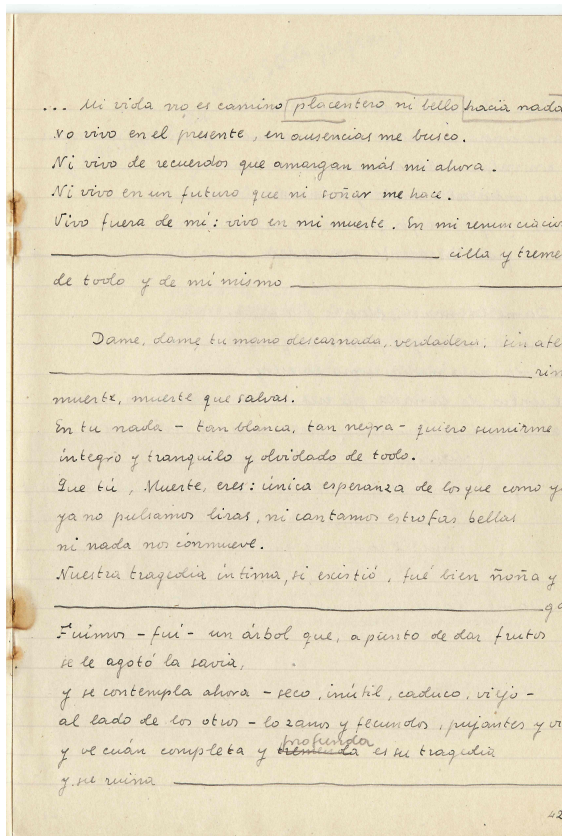 ... Mi vida no es camino placentero ni bello hacia nada
No vivo en el presente, en ausencias me busco.
Ni vivo de recuerdos que amargan más mi ahora.
Ni vivo en un futuro que ni soñar me hace.
Vivo fuera de mí: vivo en mi muerte. En mi renunciació
cilla y treme
de todo y de mí mismo
Dame, dame tu mano descarnada, verdadera: sin afe
rin
muerte, muerte que salvas.
En tu nada - tan blanca, tan negra - quiero sumirme
íntegro y tranquilo y olvidado de todo.
Que tú, Muerte, eres: única esperanza de los que como y
ya no pulsamos liras, ni cantamos estrofas bellas
ni nada nos cónmueve.
Nuestra tragedia íntima, si existió, fué bien ñoña y
Fuimos - fuí - un árbol que, a punto de dar frutos
se le agotó la savia,
y se contempla ahora - seco, inútil, caduco, viejo -
al lado de los otros - lozanos y fecundos, pujantes y vi
profunda
y ve cuán completa y tremenda es su tragedia
y su ruina
42